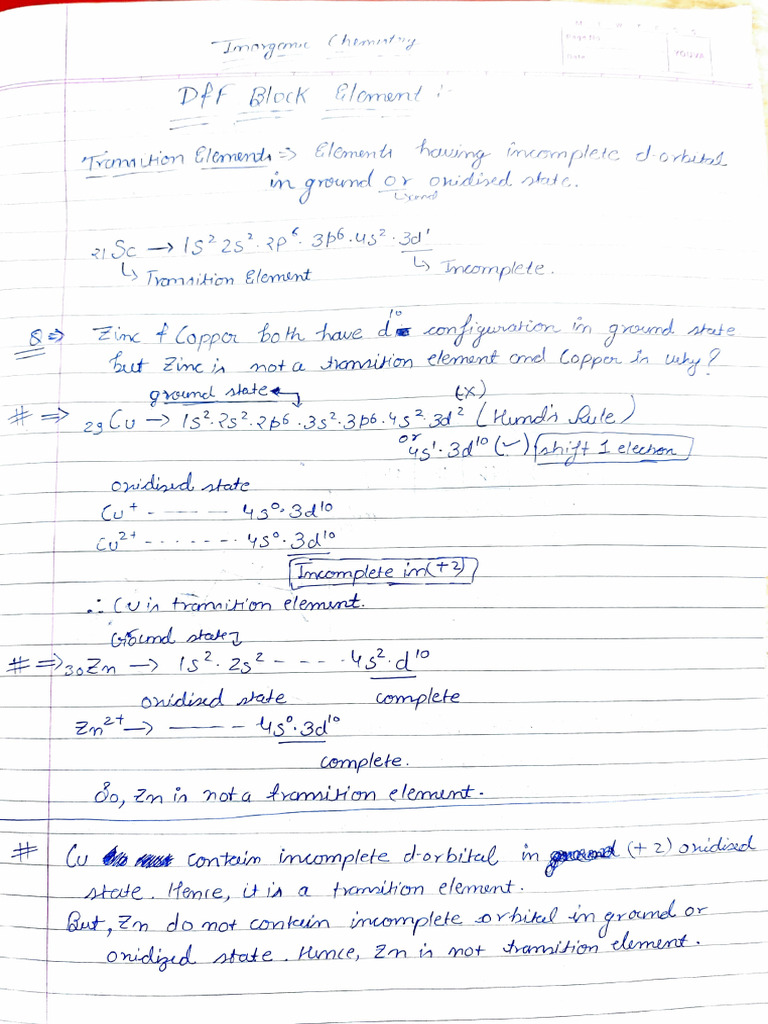 Inorganic Chemistry
YOUVA
Date
D & F Block Element :-
Transition Elements => Elements having incomplete d-orbital
in ground or oxidised state.
21Sc → 1s² 2s². 2p⁶. 3p⁶. 4s². 3d¹
↳ Transition Element ↳ Incomplete.
Q => Zinc & Copper both have d¹⁰ configuration in ground state
but Zinc is not a transition element and Copper is why?
ground state (×)
# => 29Cu → 1s². 2s². 2p⁶. 3s². 3p⁶. 4s². 3d² (Hund's Rule)
or 4s¹. 3d¹⁰ (✓) shift 1 electron
oxidised state
Cu⁺ - - - - - - 4s⁰. 3d¹⁰
Cu²⁺ - - - - - - 4s⁰. 3d¹⁰
Incomplete in (+2)
∴ Cu is transition element.
Ground state
# => 30Zn → 1s². 2s² - - - - 4s². d¹⁰
oxidised state complete
Zn²⁺ → - - - - - 4s⁰. 3d¹⁰
complete.
So, Zn is not a transition element.
# Cu contain incomplete d-orbital in (+2) oxidised
state. Hence, it is a transition element.
But, Zn do not contain incomplete orbital in ground or
oxidized state. Hence, Zn is not transition element.